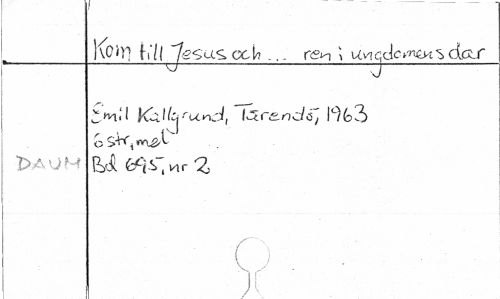 Kom till Jesus och ... ren i ungdomens dar
Emil Källgrund, Tärendö, 1963
6 str, mel
DAUM Bd 695, nr 2